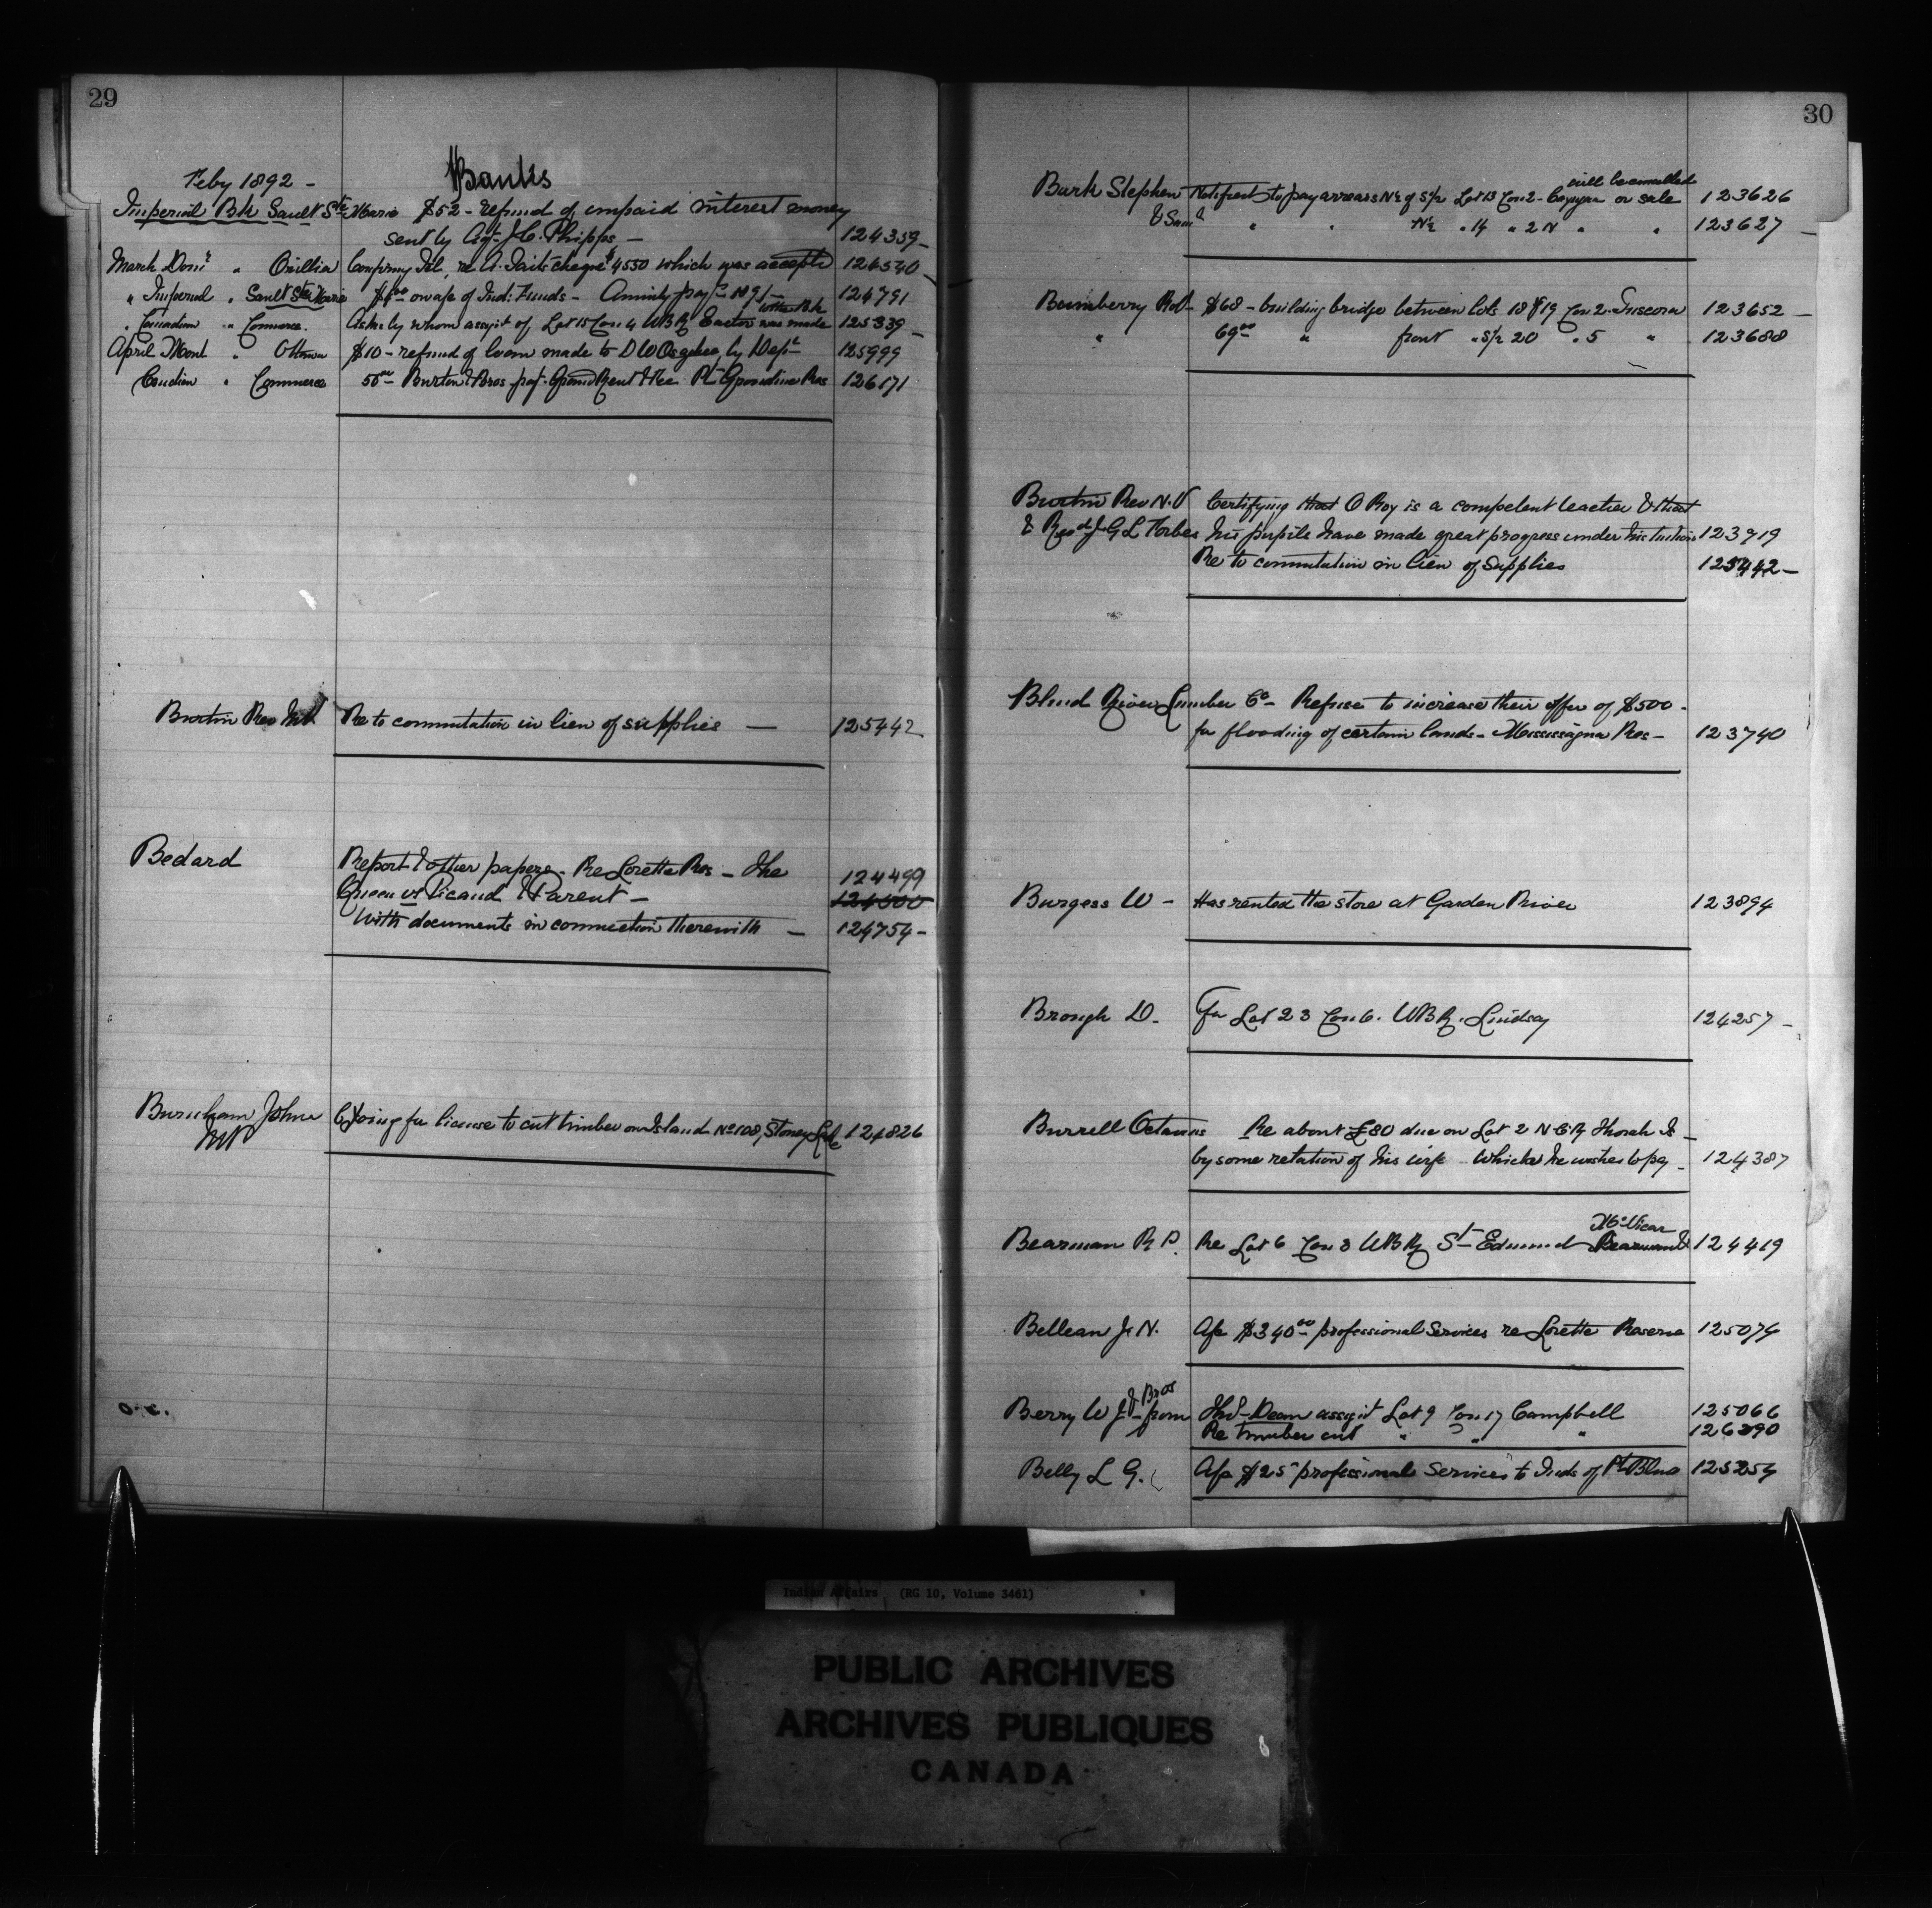 29
Feby 1892 -
Banks
Imperial Bk Sault Ste Marie $52 - refund of unpaid interest money
sent by Agt J.C. Phipps - 124359
March Domn " Orillia Confirmg Tel. re A. Taits cheque $4550 which was accepted 124540
" Imperial " Sault Ste Marie on a/c of Ind: Funds - Annuity 1891 - 124791
" Canadian " Commerce. Asks by whom assgt of Lot 15 Con 4 WBR Eastnor was made 125339
April Montl " Ottawa $10 - refund of loan made to D W Osagee, by Dept 125999
Canadian " Commerce 50 00 Burton & Bros Ground Rent Res 126171
Burtin Rev NV Re to commutation in lieu of supplies - 125442
Bedard Report & other papers - Re Lorette Res - The 124499
Queen vs Picaud & Parent - 124500
With documents in connection therewith - 124754 -
Burnham John for license to cut timber on Island No 108, Stoney Lake 124826
MP
o.c.
30
Burk Stephen Notified to pay arrears N½ of S½ Lot 13 Con 2 - Cayuga or sale will be cancelled 123626
& Saml " " N½ " 14 " 2 N " " 123627
Bumberry Robt $68 - building bridge between lots 18 & 19 Con 2 - Tuscarora 123652
" 69 00 " front " S½ 20 " 5 " 123688
Burtin Rev N.V Certifying that O Roy is a competent teacher & that
& Revd J G L Forbes his pupils have made great progress under his tuition 123719
Re to commutation in lieu of supplies 125442 -
Blind River Lumber Co - Refuse to increase their offer of $500 -
for flooding of certain lands - Mississagua Res - 123740
Burgess W - Has rented the store at Garden River 123894
Brough D. for Lot 23 Con 6. WBR. Lindsay 124257 -
Burrell Octavius Re about £80 due on Lot 2 N C R Thorah Is -
by some relation of his wife which he wishes to pay - 124387
Bearman R P. Re Lot 6 Con 3 WBR St Edmund McVicar 124419
Belleau J. N. A/c $340 00 professional Services re Lorette Reserve 125074
Berry W J & Bros from Thos Dean assgt Lot 9 Con 17 Campbell 125066
Re timber cut " " " 126390
Belly L G. A/c $25 professional Services to Inds of Pt Bleue 125254
Indian Affairs (RG 10, Volume 3461)
PUBLIC ARCHIVES
ARCHIVES PUBLIQUES
CANADA